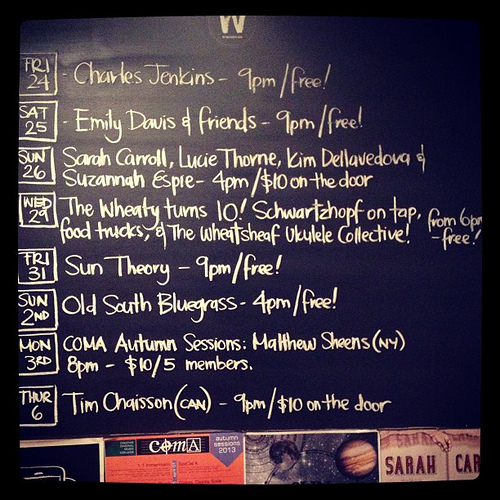 W
FRI 24 - Charles Jenkins - 9pm/free!
SAT 25 - Emily Davis & friends - 9pm/free!
SUN 26 Sarah Carroll, Lucie Thorne, Kim Dellavedova &
Suzannah Espie - 4pm/$10 on the door
WED 29 The Wheaty turns 10! Schwartzhopf on tap,
food trucks, & The Wheatsheaf Ukulele Collective!
from 6pm
- free!
FRI 31 Sun Theory - 9pm/free!
SUN 2ND Old South Bluegrass - 4pm/free!
MON 3RD COMA Autumn Sessions: Matthew Sheens (NY)
8pm - $10/5 members.
THUR 6 Tim Chaisson (CAN) - 9pm/$10 on the door
COMA
autumn
sessions
2013
SARAH
SARAH CAR